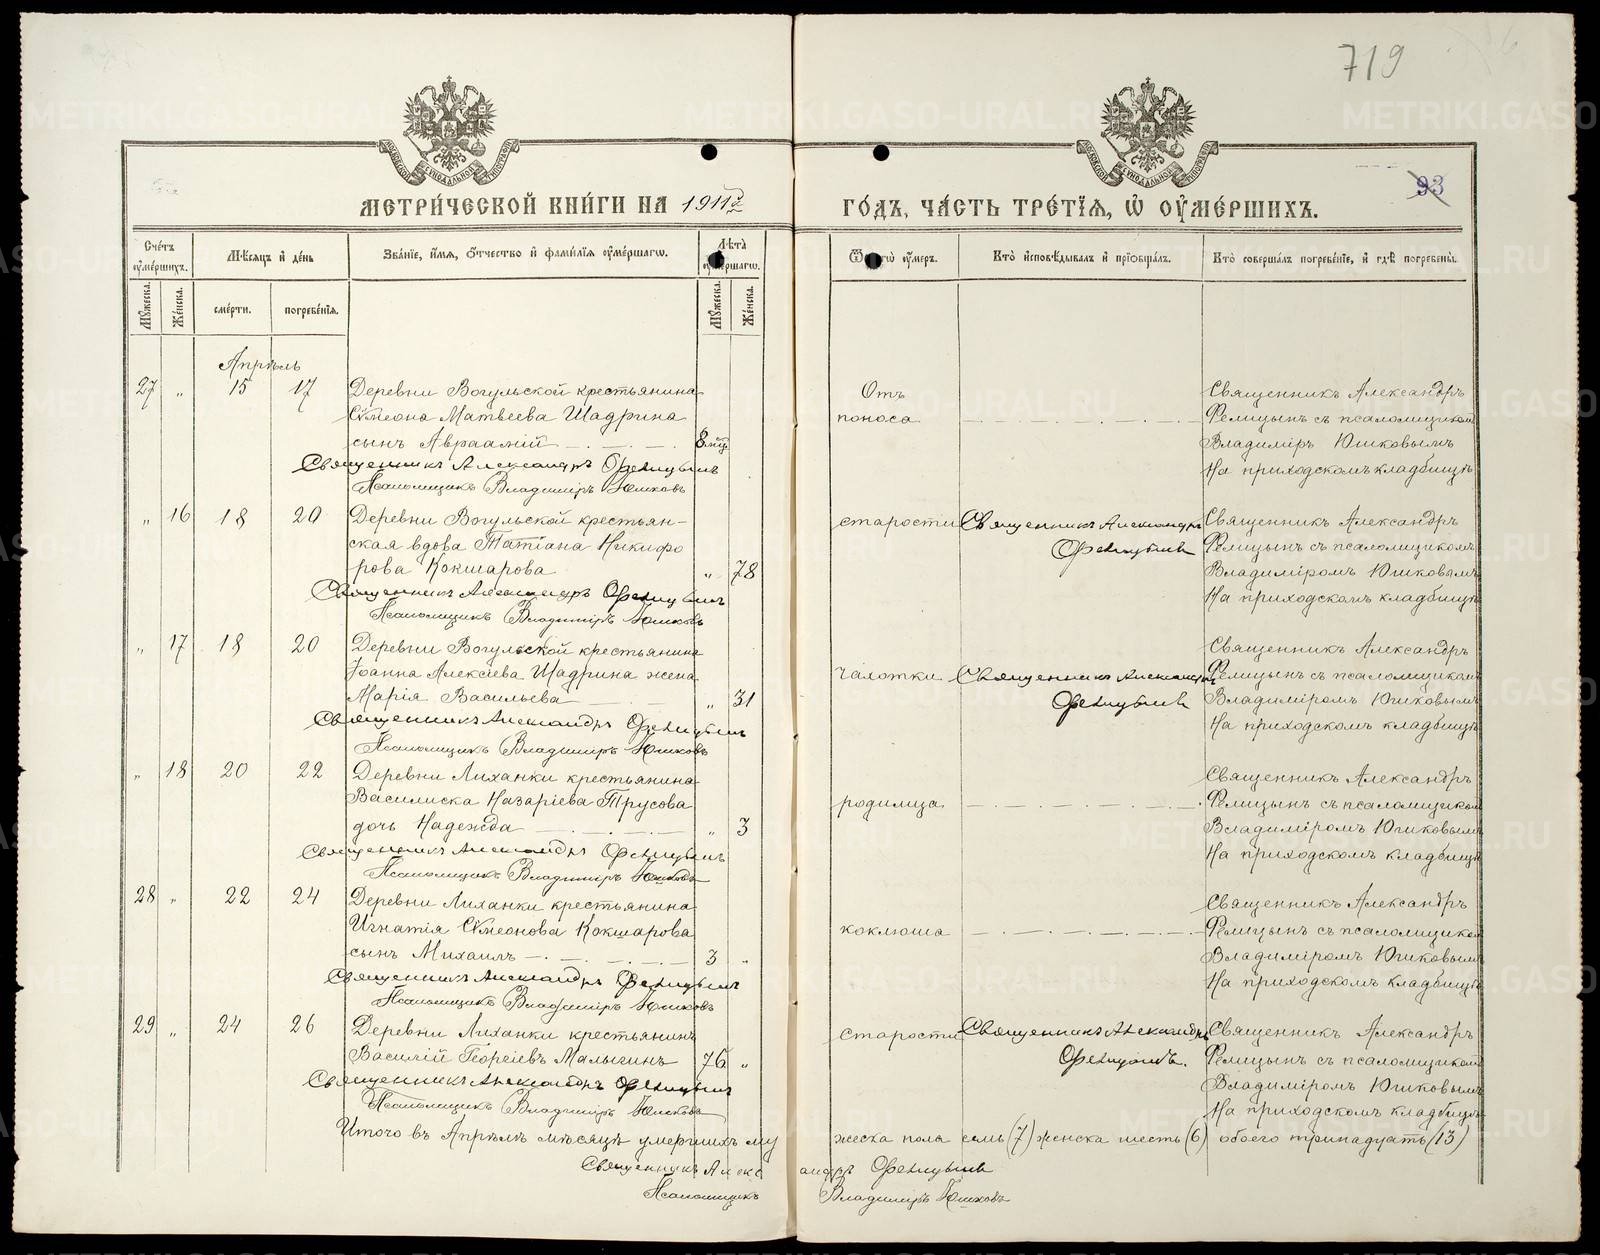 719
93
МЕТРИ́ЧЕСКОЙ КНИ́ГИ НА 1911й
ГО́ДЪ, ЧА́СТЬ ТРЕ́ТІЯ, Ѡ ОУМЕ́РШИХЪ.
Сче́тъ оуме́ршихъ.
Мꙋжеска.
Же́нска.
Мѣ́сяцъ и де́нь
сме́рти.
погребе́нія.
Зва́ніе, и́мя, о́тчество и фами́лія оуме́ршагѡ.
Лѣ́та оуме́ршагѡ.
Мꙋжеска.
Же́нска.
Ѿ чегѡ̀ оу́меръ.
Кто̀ исповѣ́дывалъ и пріобща́лъ.
Кто̀ соверша́лъ погребе́ніе, и гдѣ̀ погребены̀.
Апрѣль
27 „ 15 17 Деревни Вогульской крестьянина
Сѵмеона Матвеева Шадрина
сынъ Авраамій 8 мц
Священникъ Александръ Фелицынъ
Псаломщикъ Владиміръ Юшковъ
Отъ
поноса
Священникъ Александръ
Фелицынъ съ псаломщикомъ
Владиміръ Юшковымъ
На приходскомъ кладбищѣ
„ 16 18 20 Деревни Вогульской крестьян-
ская вдова Татіана Никифо
рова Кокшарова „ 78
Священникъ Александръ Фелицынъ
Псаломщикъ Владиміръ Юшковъ
старости
Священникъ Александръ
Фелицынъ
Священникъ Александръ
Фелицынъ съ псаломщикомъ
Владиміромъ Юшковымъ
На приходскомъ кладбищѣ
„ 17 18 20 Деревни Вогульской крестьянина
Іоанна Алексіева Шадрина жена
Марія Васильева „ 31
Священникъ Александръ Фелицынъ
Псаломщикъ Владиміръ Юшковъ
чахотки
Священникъ Александръ
Фелицынъ
Священникъ Александръ
Фелицынъ съ псаломщикомъ
Владиміромъ Юшковымъ
На приходскомъ кладбищѣ
„ 18 20 22 Деревни Лиханки крестьянина
Василиска Назаріева Трусова
дочь Надежда „ 3
Священникъ Александръ Фелицынъ
Псаломщикъ Владиміръ Юшковъ
родимца
Священникъ Александръ
Фелицынъ съ псаломщикомъ
Владиміромъ Юшковымъ
На приходскомъ кладбищѣ
28 „ 22 24 Деревни Лиханки крестьянина
Игнатія Сѵмеонова Кокшарова
сынъ Михаилъ 3 „
Священникъ Александръ Фелицынъ
Псаломщикъ Владиміръ Юшковъ
коклюша
Священникъ Александръ
Фелицынъ съ псаломщикомъ
Владиміромъ Юшковымъ
На приходскомъ кладбищѣ
29 „ 24 26 Деревни Лиханки крестьянинъ
Василій Георгіевъ Малыгинъ 76 „
Священникъ Александръ Фелицынъ
Псаломщикъ Владиміръ Юшковъ
старости
Священникъ Александръ
Фелицынъ.
Священникъ Александръ
Фелицынъ съ псаломщикомъ
Владиміромъ Юшковымъ
На приходскомъ кладбищѣ
Итого въ Апрѣлѣ мѣсяцѣ умершихъ му
жеска пола семь (7) женска шесть (6) обоего тринадцать (13)
Священникъ Александръ Фелицынъ
Псаломщикъ Владиміръ Юшковъ
METRIKI.GASO-URAL.RU